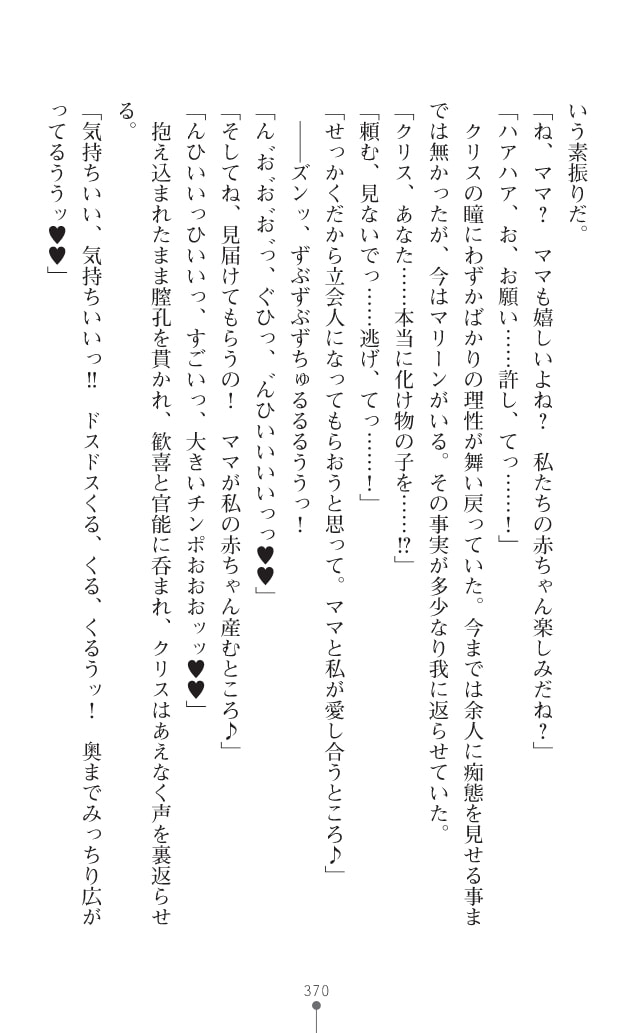 いう素振りだ。
「ね、ママ？　ママも嬉しいよね？　私たちの赤ちゃん楽しみだね？」
「ハアハア、お、お願い……許し、てっ……！」
　クリスの瞳にわずかばかりの理性が舞い戻っていた。今までは余人に痴態を見せる事ま
では無かったが、今はマリーンがいる。その事実が多少なり我に返らせていた。
「クリス、あなた……本当に化け物の子を……!?」
「頼む、見ないでっ……逃げ、てっ……！」
「せっかくだから立会人になってもらおうと思って。ママと私が愛し合うところ♪」
　――ズンッ、ずぶずぶずちゅるるるううっ！
「ん゛お゛お゛お゛っ、ぐひっ、゛んひいいいいっっ♥♥」
「そしてね、見届けてもらうの！　ママが私の赤ちゃん産むところ♪」
「んひいいっひいいっ、すごいっ、大きいチンポおおおッッ♥♥」
　抱え込まれたまま膣孔を貫かれ、歓喜と官能に呑まれ、クリスはあえなく声を裏返らせ
る。
「気持ちいい、気持ちいいっ!!　ドスドスくる、くる、くるうッ！　奥までみっちり広が
ってるううッ♥♥」
370